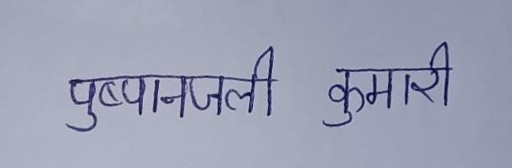 पुष्पानजली कुमारी